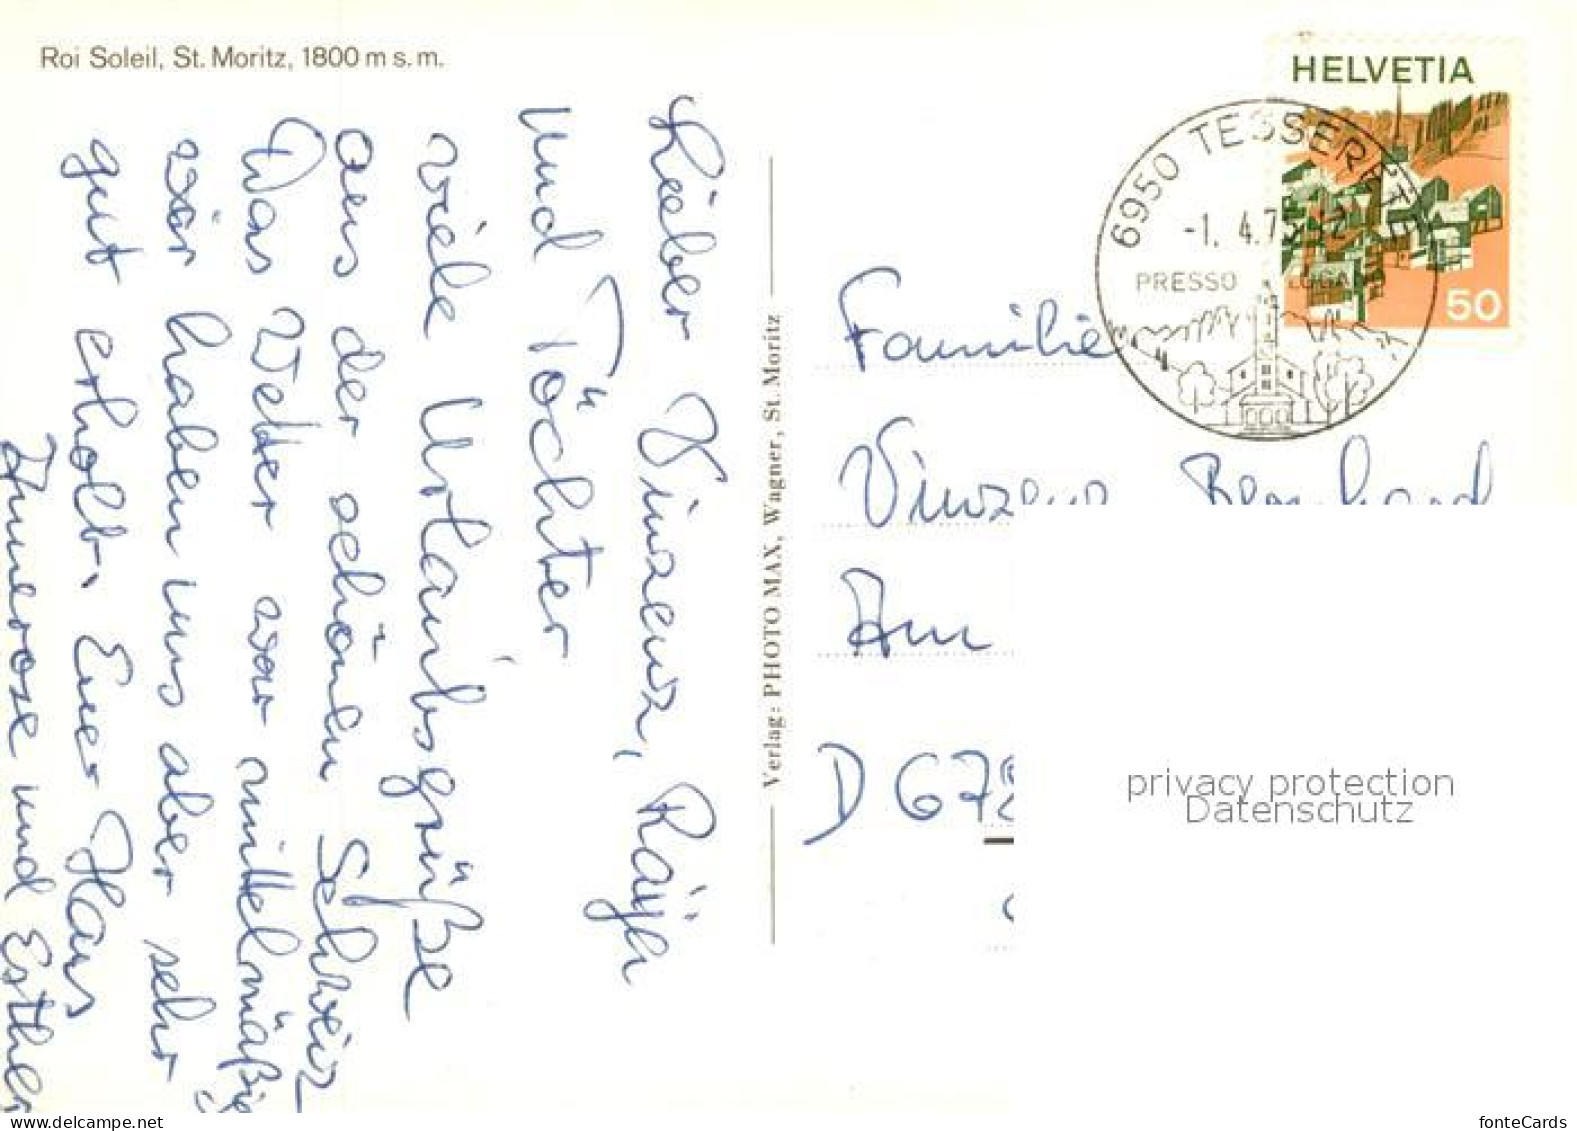 Roi Soleil, St. Moritz, 1800 m s. m.
Lieber Vinzenz, Raija
und Töchter
viele Urlaubsgrüße
aus der schönen Schweiz
Das Wetter war mittelmäßig
wir haben uns aber sehr
gut erholt. Euer Hans
Annerose und Esther
Verlag: PHOTO MAX, Wagner, St. Moritz
HELVETIA
50
6950 TESSERETE
-1. 4.75-12
PRESSO LUGANO
Familie
Vinzenz Bernhard
Am
D 672
privacy protection
Datenschutz
fonteCards